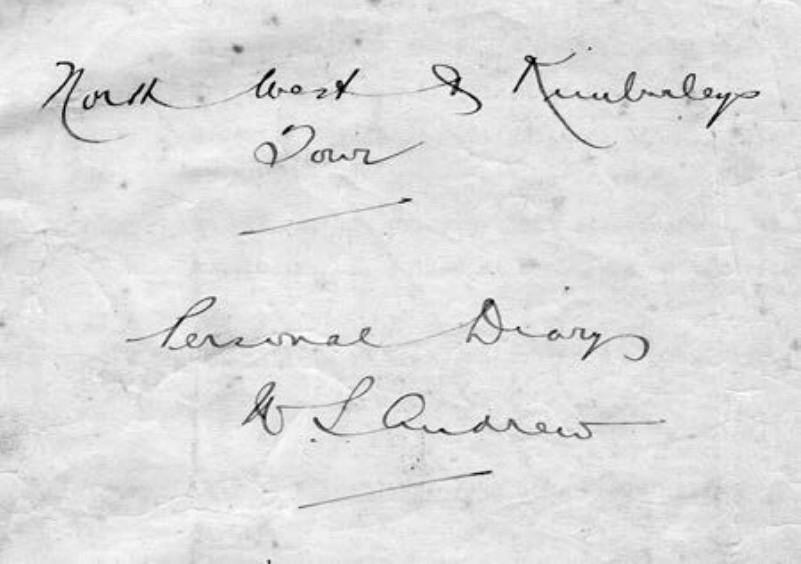 North West & Kimberleys
Tour
Personal Diary
W. L Andrew